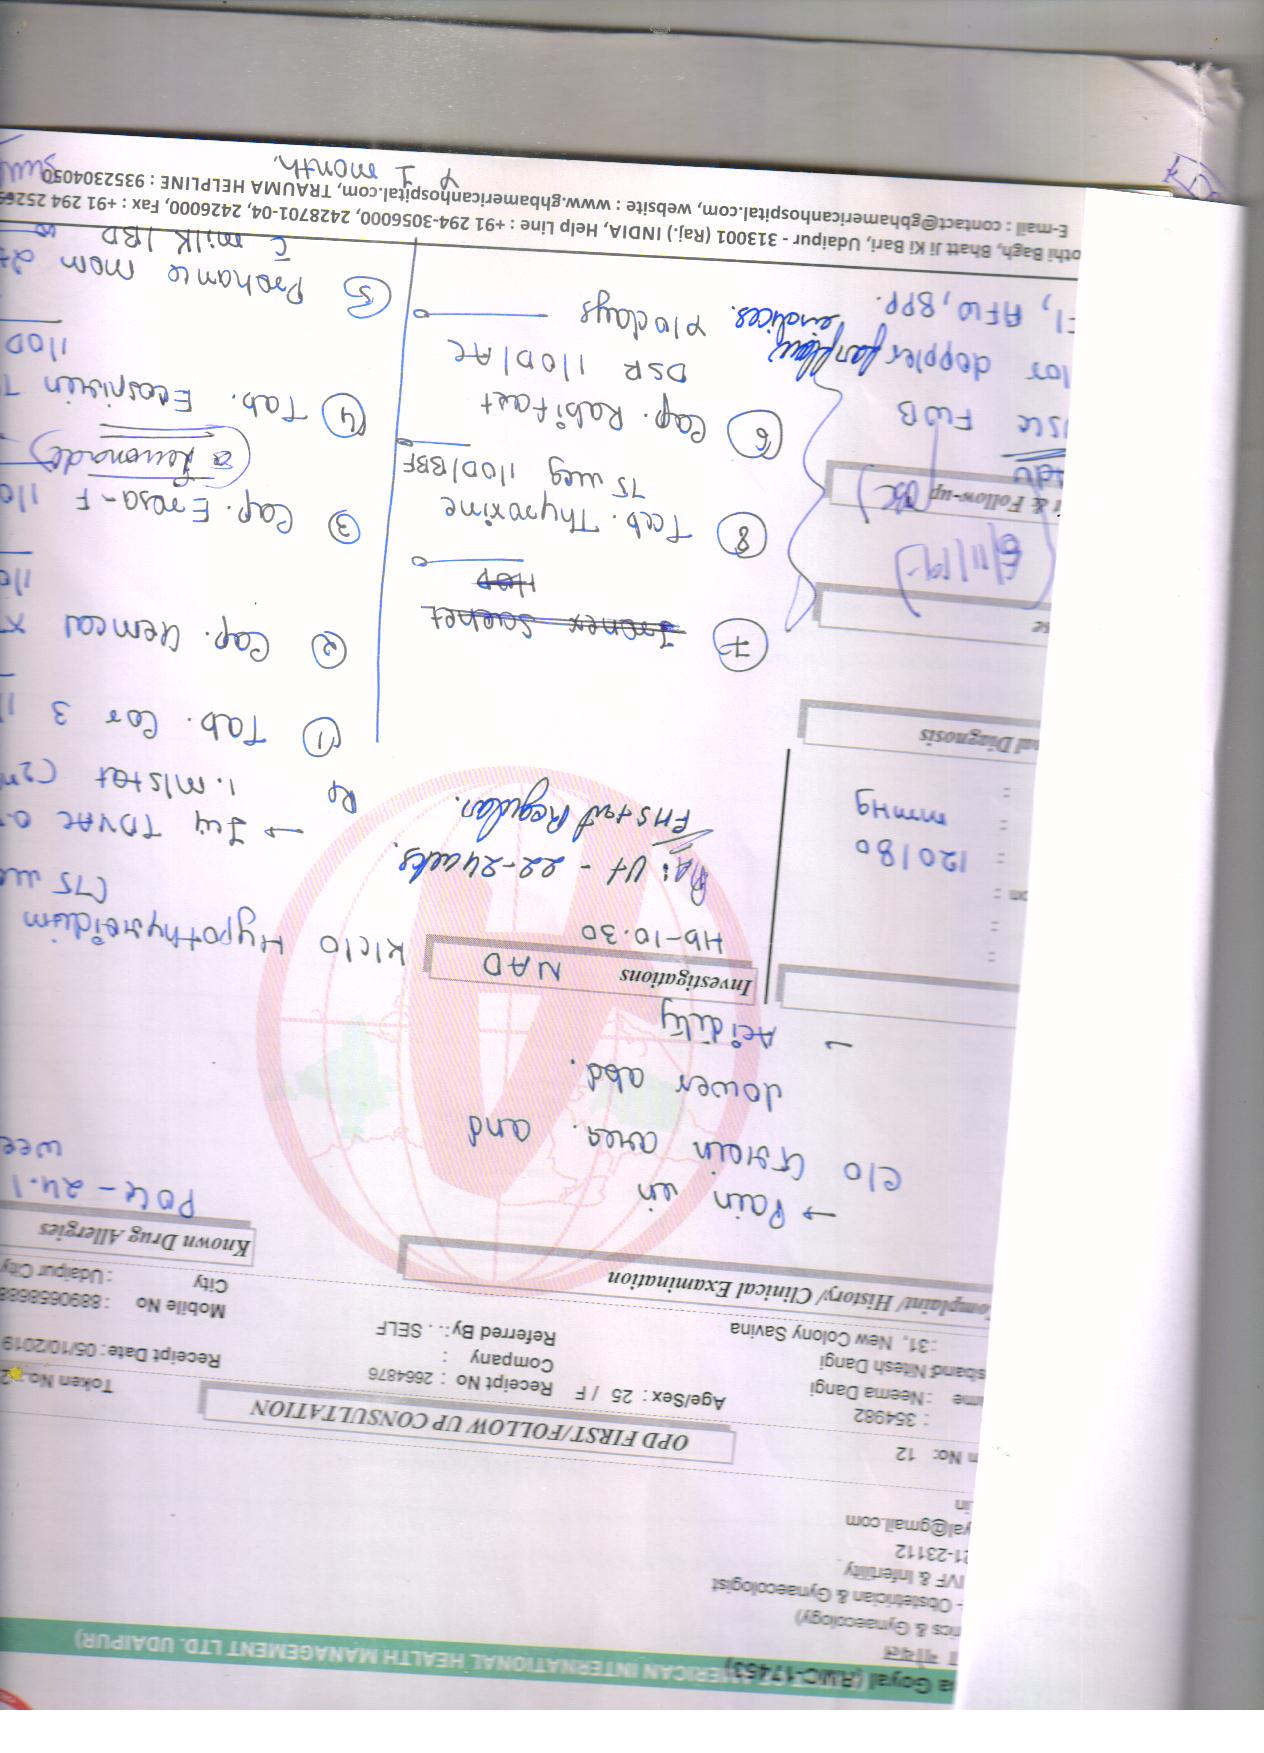 a Goyal (RMC-17453)
AMERICAN INTERNATIONAL HEALTH MANAGEMENT LTD. UDAIPUR)
ा गोयल
rics & Gynaecology)
- Obstetrician & Gynaecologist
IVF & Infertility
21-23112
yal@gmail.com
.in
n No: 12
OPD FIRST/FOLLOW UP CONSULTATION
Token No.
: 354982
me : Neema Dangi
Age/Sex : 25 / F
Receipt No : 2664876
Receipt Date : 05/10/2019
sband Nitesh Dangi
Company :
Mobile No : 8890658688
: 31, New Colony Savina
Referred By: . . SELF
City : Udaipur City
omplaint/ History/ Clinical Examination
Known Drug Allergies
→ Pain in
POG - 24.1
wee
c/o Groin area. and
lower abd.
→ Acidity
Investigations NAD
Hb-10.30
K/c/o Hypothyroidism
(75
P/A: Ut - 22-24 wks.
FHS + Regular.
→ Inj TDVAC 0.
Rx 1. m/stat (2n
:
:
:
om :
: 120/80
: mmHg
:
al Diagnosis
① Tab. Cor 3
② Cap. Gemcal
1/0
③ Cap. Erosa-F 1/0
c Lemonade
④ Tab. Ecosprin
1/OD
⑤ Prohance mom 2
c milk/BD
x 1 month.
⑦ Sachet
HOD
⑧ Tab. Thyroxine
75 mcg 1/OD/BBF
⑥ Cap. Rabifast
DSR 1/OD/AC
x 10 days
se
6/11/19
& Follow-up
USG FWB
lor doppler for flow indices.
FI, AFW, BPP.
othi Bagh, Bhatt Ji Ki Bari, Udaipur - 313001 (Raj.) INDIA, Help Line : +91 294-3056000, 2428701-04, 2426000, Fax : +91 294 252
E-mail : contact@gbhamericanhospital.com, website : www.gbhamericanhospital.com, TRAUMA HELPLINE : 9352304050